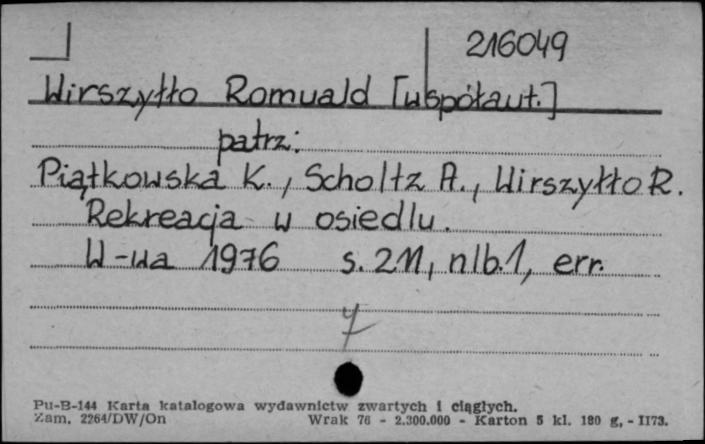 216049
Wirszyłło Romuald [współaut.]
patrz:
Piątkowska K., Scholtz A., Wirszyłło R.
Rekreacja w osiedlu.
W-wa 1976 s. 211, nlb. 1, err.
Pu-B-144 Karta katalogowa wydawnictw zwartych i ciągłych.
Zam. 2264/DW/On Wrak 76 - 2.300.000 - Karton 5 kl. 180 g, - II73.